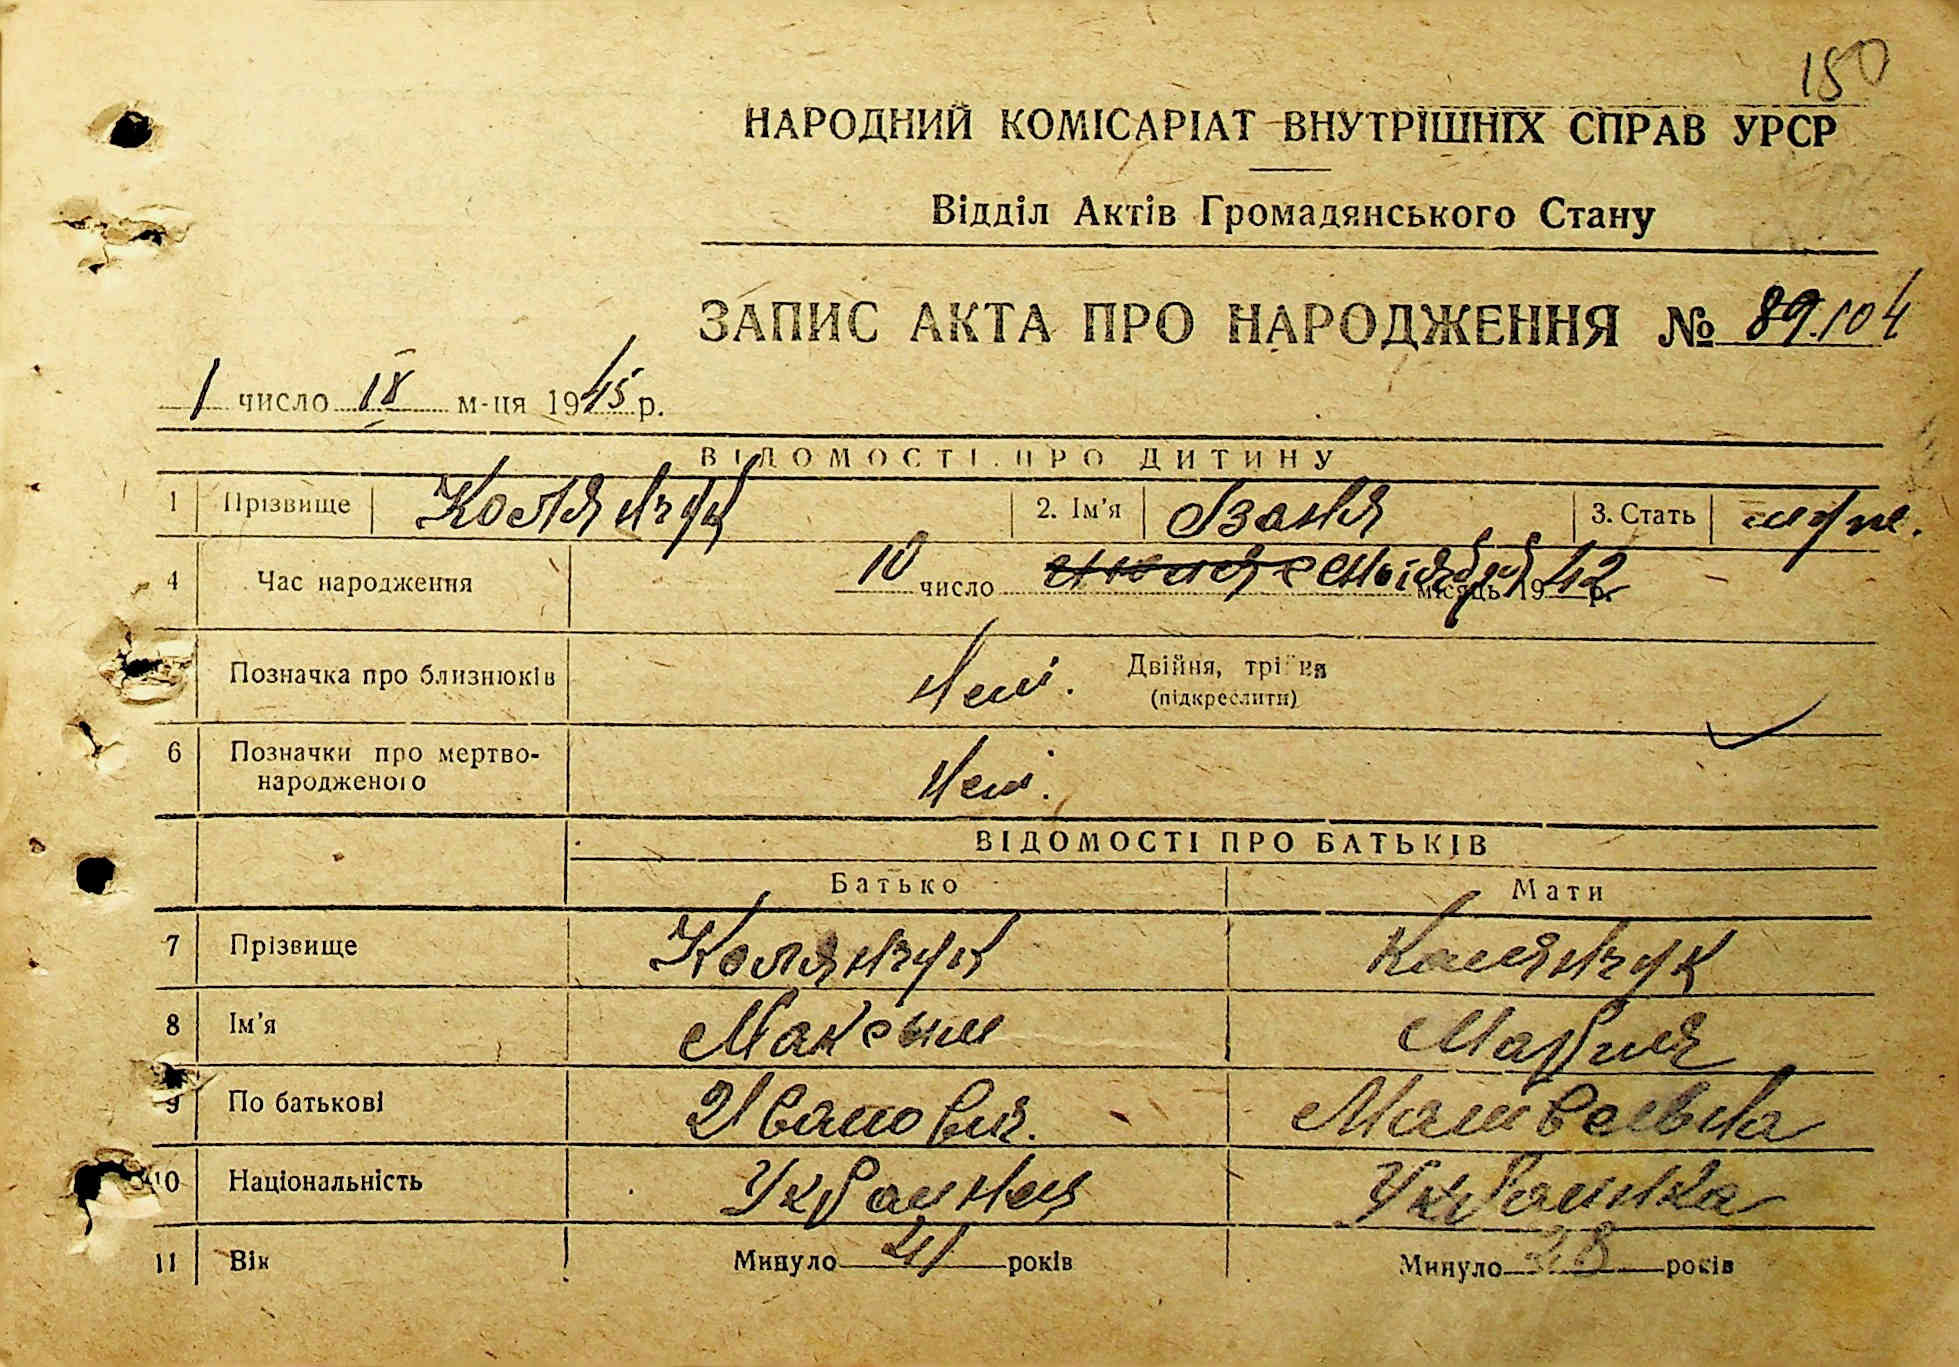 150
НАРОДНИЙ КОМІСАРІАТ ВНУТРІШНІХ СПРАВ УРСР
Відділ Актів Громадянського Стану
ЗАПИС АКТА ПРО НАРОДЖЕННЯ № 89.104
1 число IX м-ця 1945 р.
ВІДОМОСТІ ПРО ДИТИНУ
1 Прізвище Колянчук 2. Ім'я Ваня 3. Стать муж.
4 Час народження 10 число сентября місяць 1942 р.
Позначка про близнюків Нет. Двійня, трійня
(підкреслити)
6 Позначки про мертво-
народженого Нет.
ВІДОМОСТІ ПРО БАТЬКІВ
Батько Мати
7 Прізвище Колянчук Колянчук
8 Ім'я Максим Мария
9 По батькові Иванович. Матвеевна
10 Національність Украинец Украинка
11 Вік Минуло 41 років Минуло 28 років